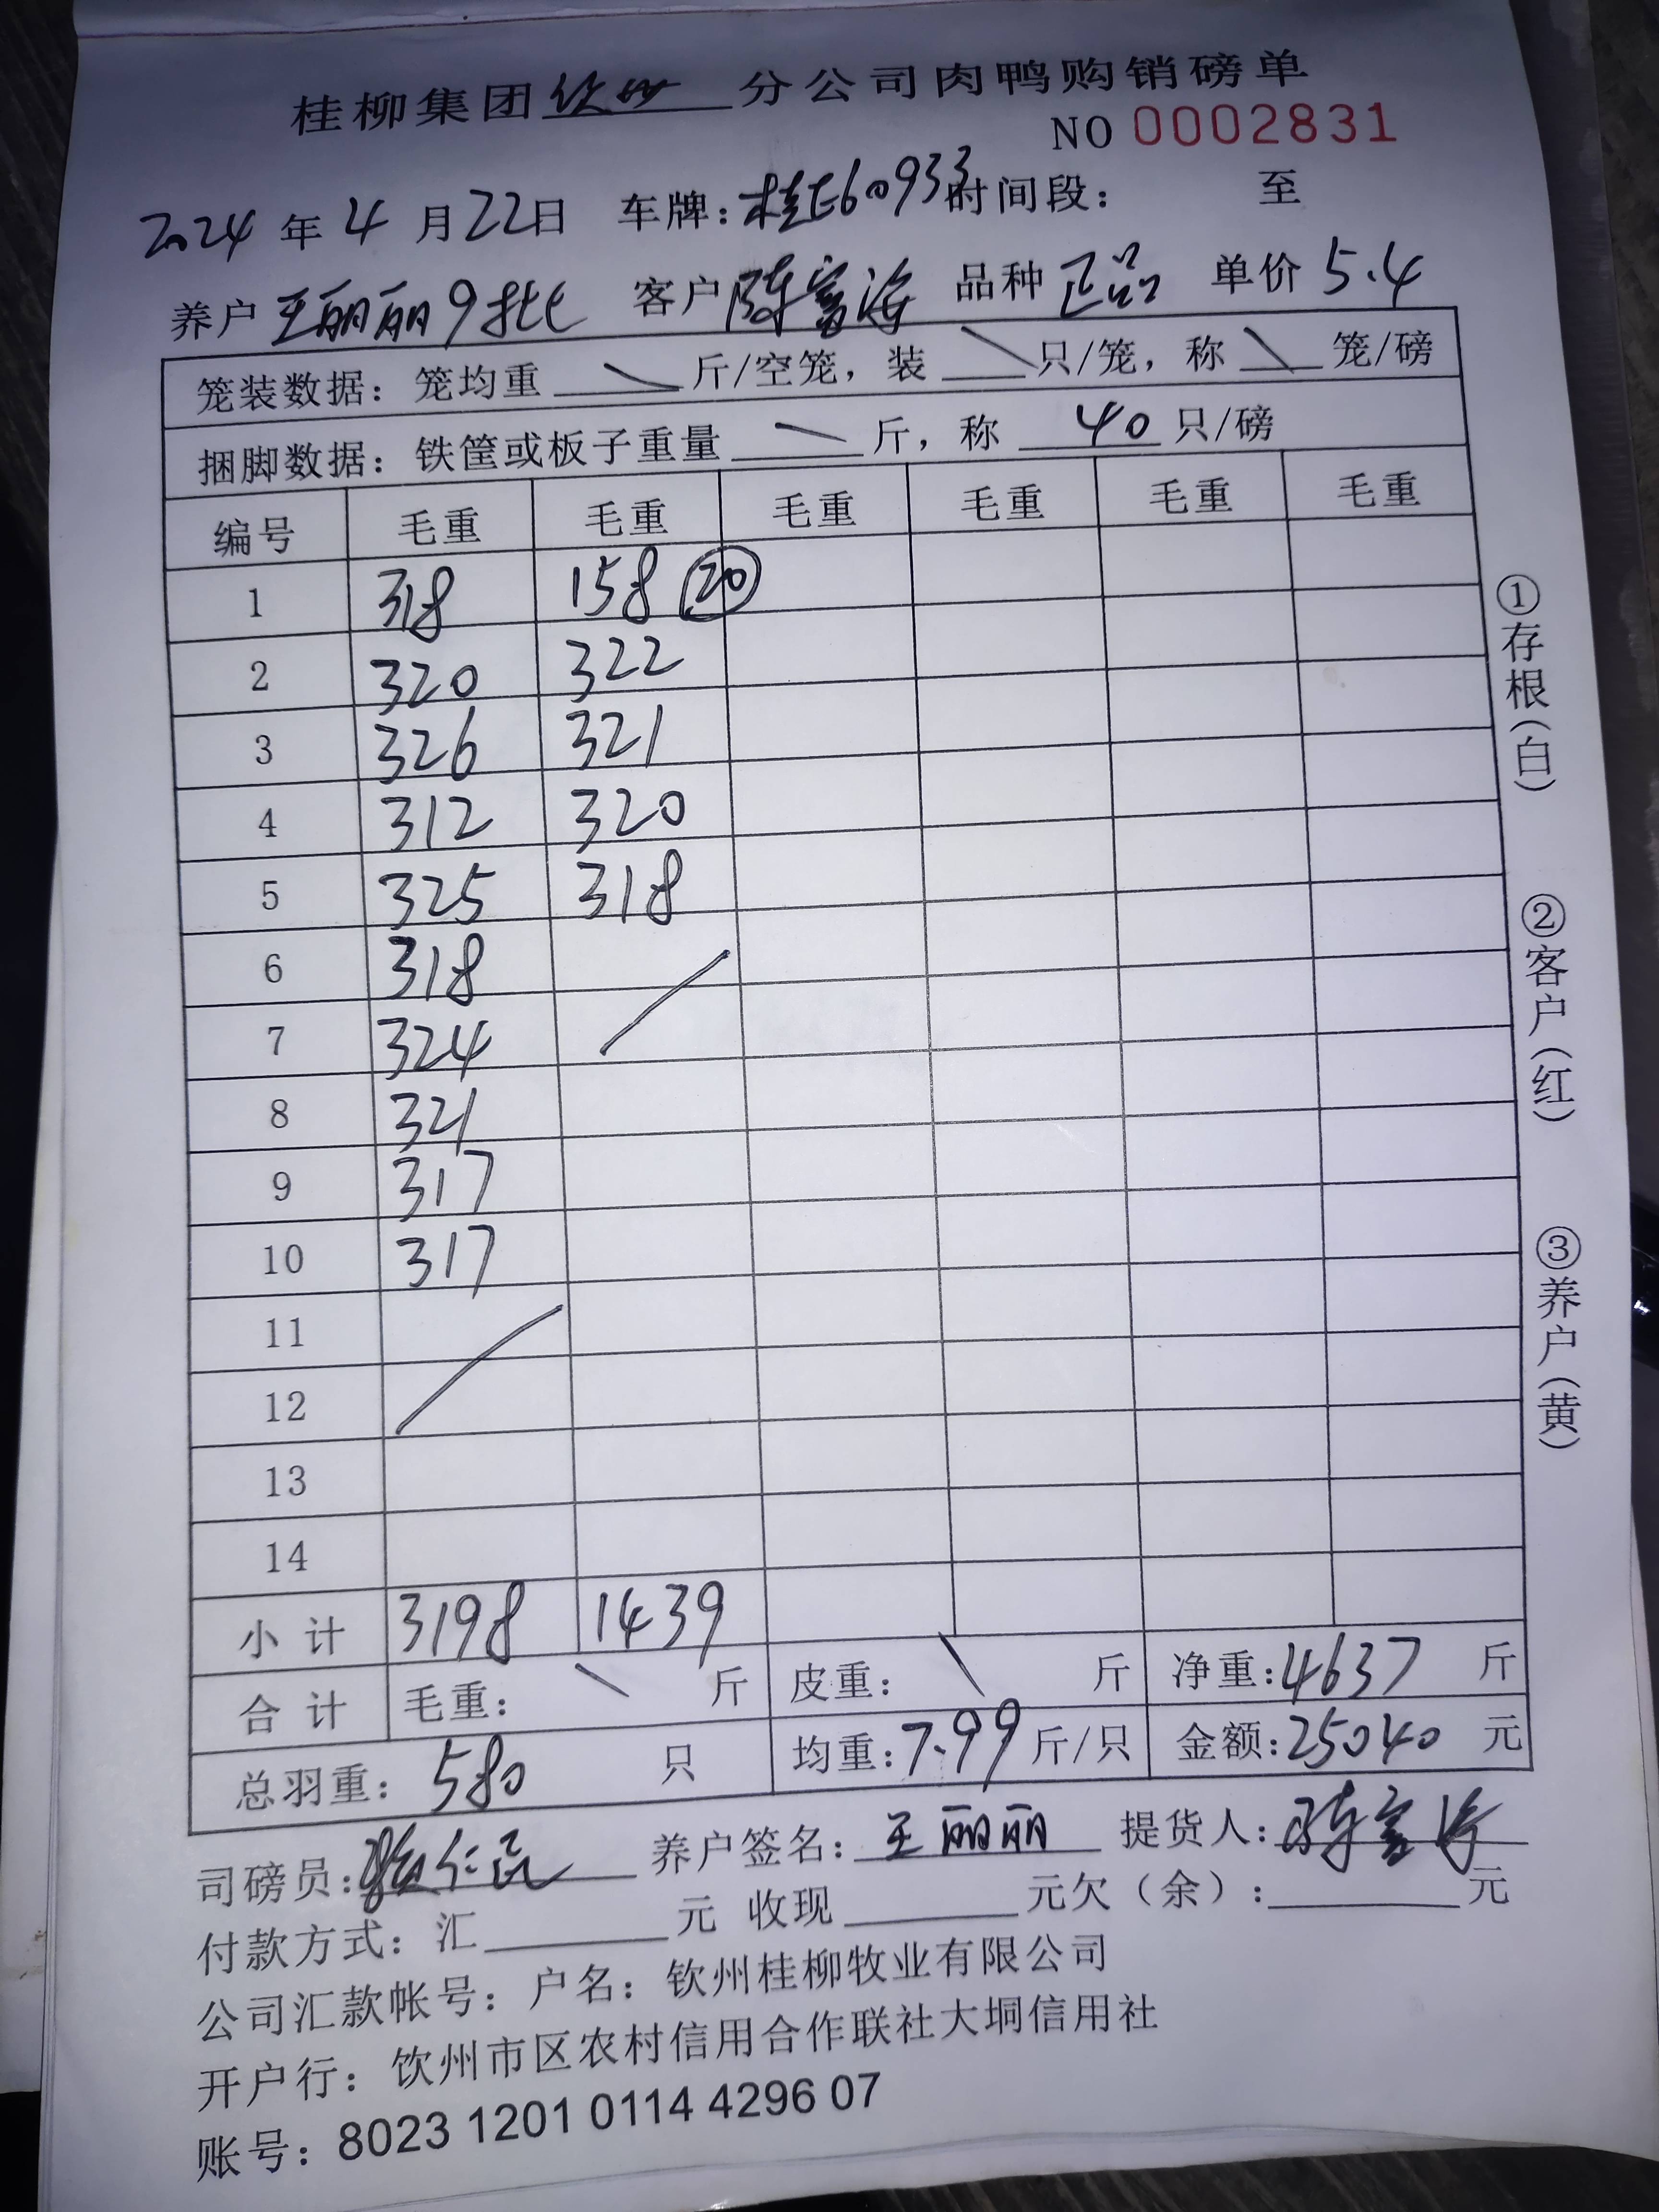 桂柳集团钦州分公司肉鸭购销磅单
NO 0002831
2024年4月22日 车牌:桂E60933时间段: 至
养户王丽丽9批 客户陈富海 品种正品 单价5.4
笼装数据:笼均重\斤/空笼,装\只/笼,称\笼/磅
捆脚数据:铁筐或板子重量\斤,称40只/磅
编号 毛重 毛重 毛重 毛重 毛重 毛重
1 318 158 ⑳
2 320 322
3 326 321
4 312 320
5 325 318
6 318
7 324
8 321
9 317
10 317
11
12
13
14
小计 3198 1439
合计 毛重:\斤 皮重:\斤 净重:4637斤
总羽重:580只 均重:7.99斤/只 金额:25040元
司磅员: 养户签名:王丽丽 提货人:陈富海
付款方式:汇____元 收现____元欠(余):____元
公司汇款帐号:户名:钦州桂柳牧业有限公司
开户行:钦州市区农村信用合作联社大垌信用社
账号:8023 1201 0114 4296 07
①存根(白) ②客户(红) ③养户(黄)